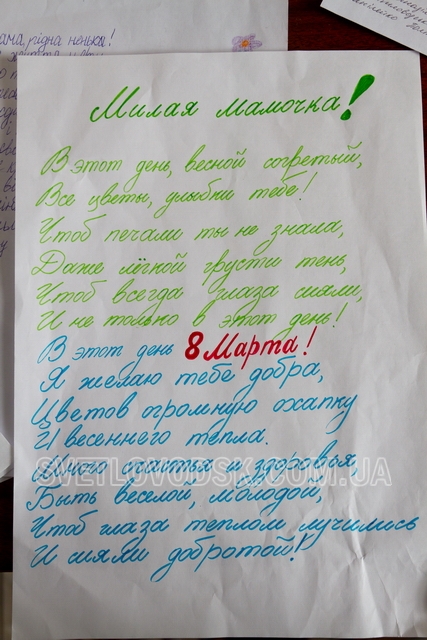 ама, рідна ненька!
Милая мамочка!
В этот день, весной согретый,
Все цветы, улыбки тебе!
Чтоб печали ты не знала,
Даже лёгкой грусти тень,
Чтоб всегда глаза сияли,
И не только в этот день!
В этот день 8 Марта!
Я желаю тебе добра,
Цветов огромную охапку
И весеннего тепла.
Много счастья и здоровья,
SVETLOVODSK.COM.UA
Быть веселой, молодой,
Чтоб глаза теплом лучились
И сияли добротой!